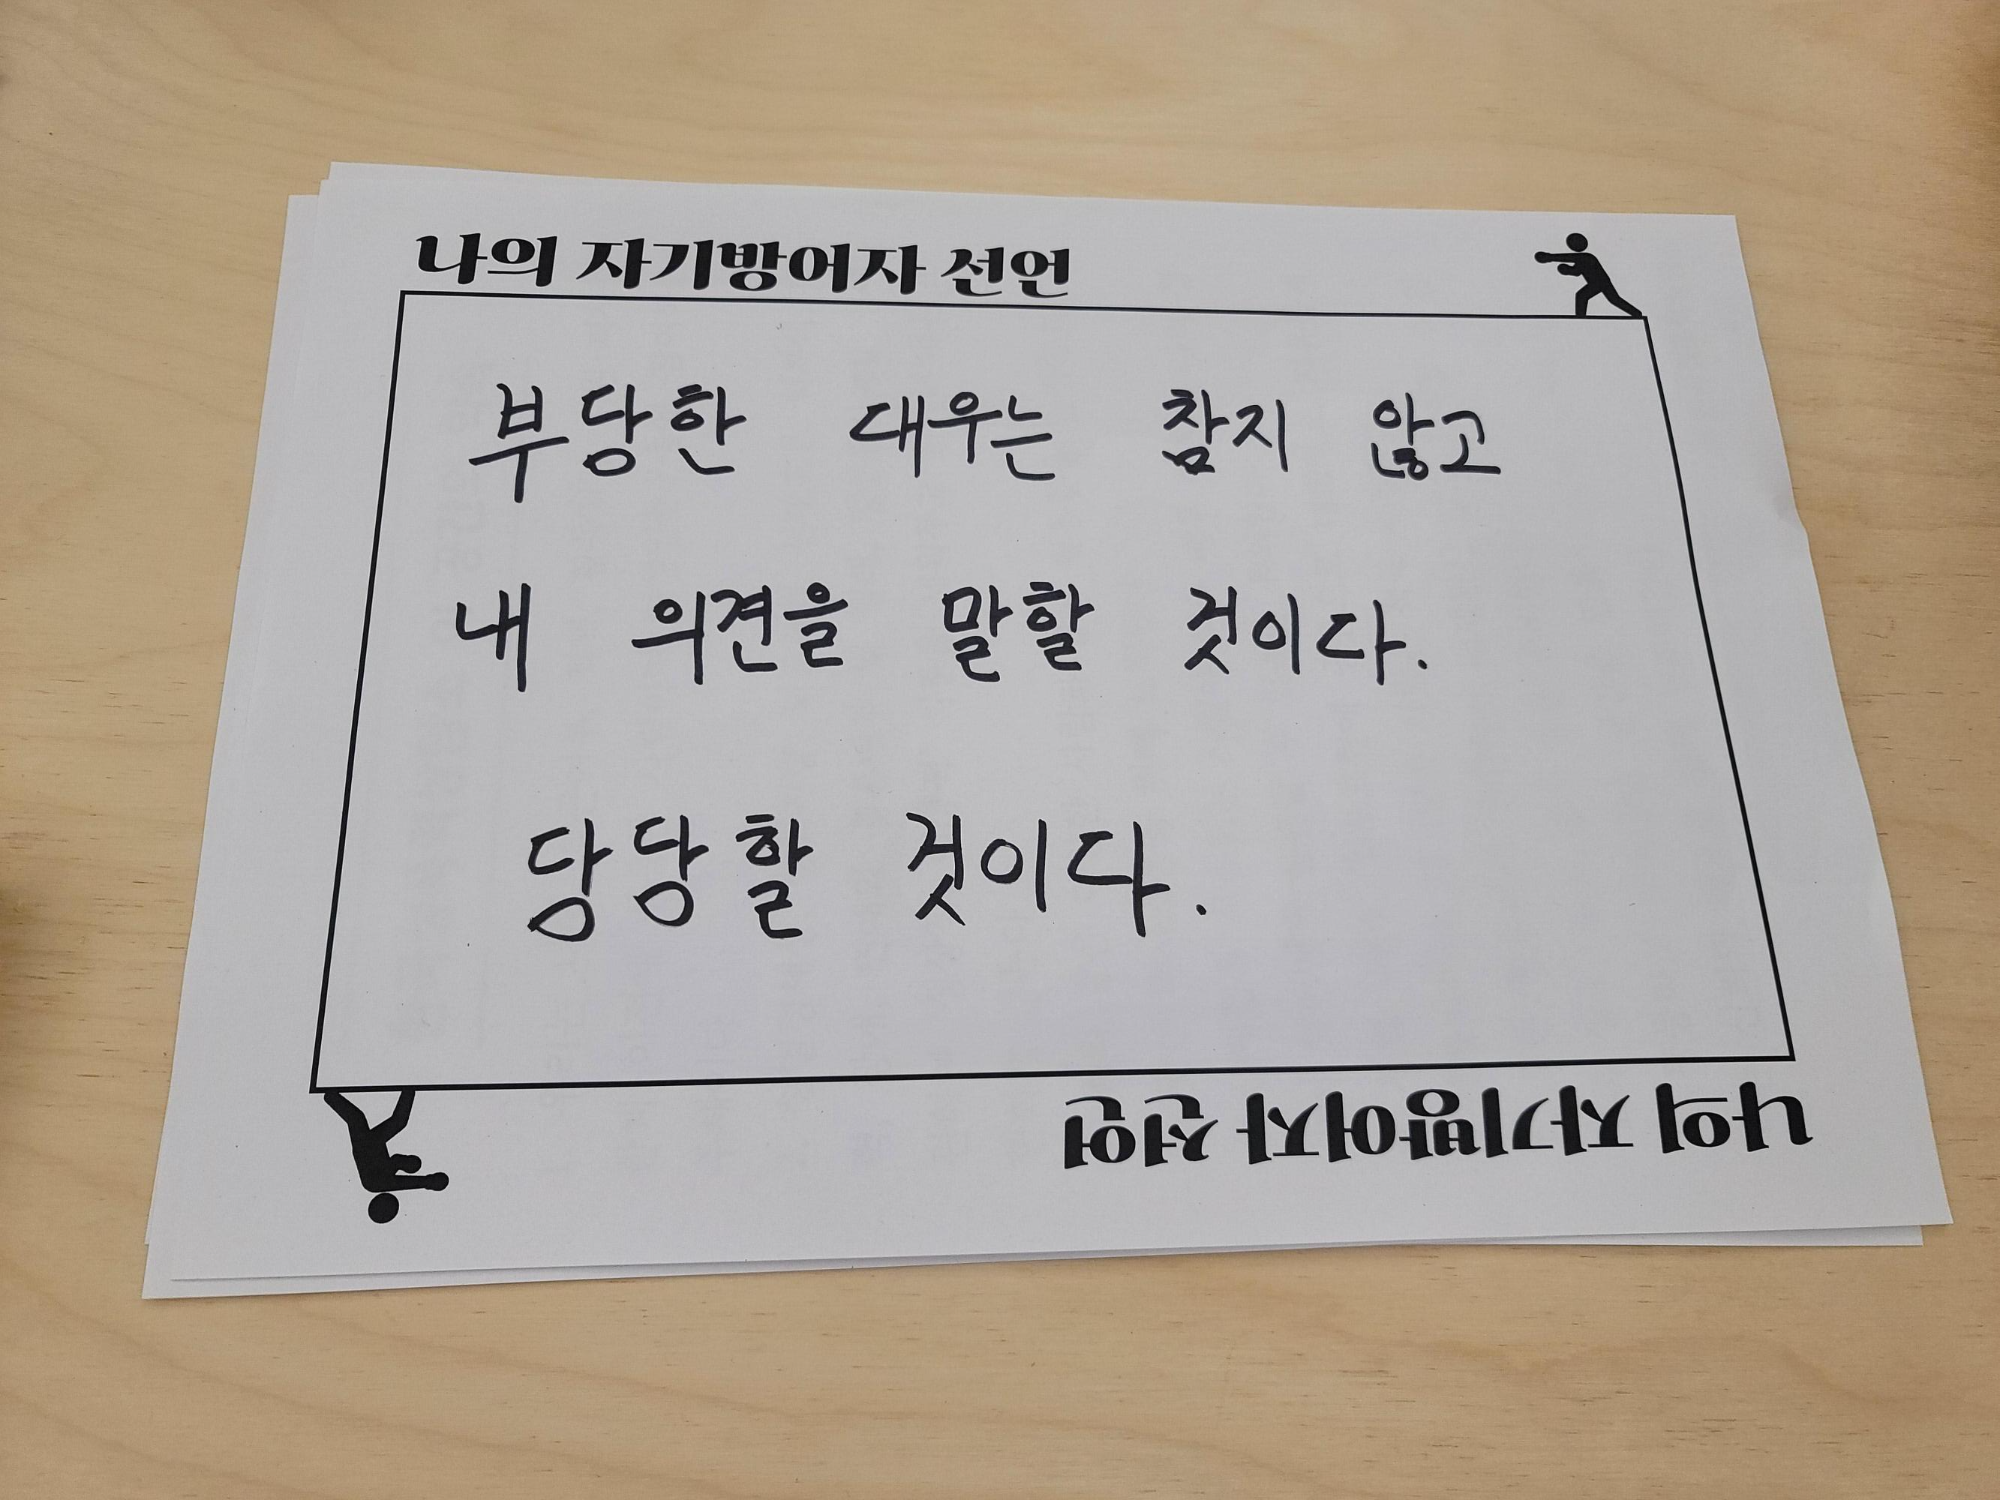 나의 자기방어자 선언
부당한 대우는 참지 않고
내 의견을 말할 것이다.
당당할 것이다.
나의 자기방어자 선언